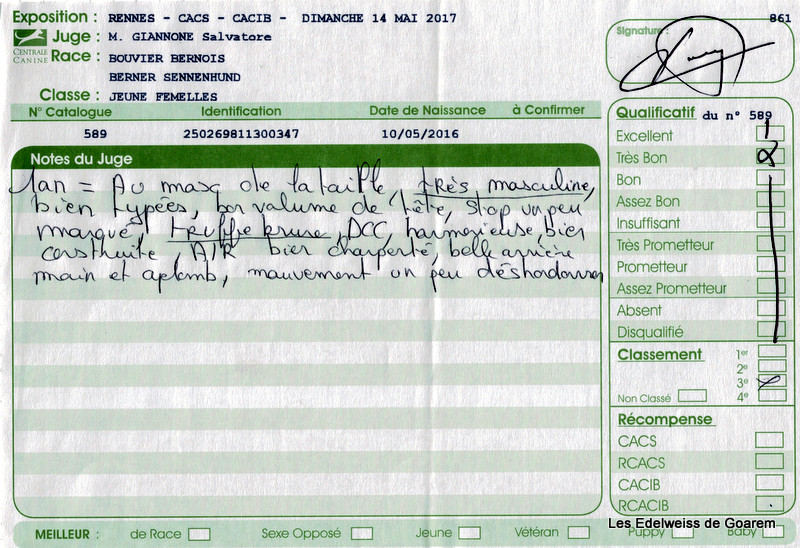 Exposition : RENNES - CACS - CACIB - DIMANCHE 14 MAI 2017
861
CENTRALE CANINE
Juge : M. GIANNONE Salvatore
Race : BOUVIER BERNOIS
BERNER SENNENHUND
Classe : JEUNE FEMELLES
Signature :
N° Catalogue Identification Date de Naissance à Confirmer
589 250269811300347 10/05/2016
Notes du Juge
1an = Au max de la taille, très masculine,
bien typées, bon volume de tête, stop un peu
marqué truffe brune, DCC, harmonieuse, bien
construite, A/R bien charpenté, belle arrière
main et aplomb, mauvement un peu déshordonner
Qualificatif du n° 589
Excellent
Très Bon
Bon
Assez Bon
Insuffisant
Très Prometteur
Prometteur
Assez Prometteur
Absent
Disqualifié
Classement 1er
2e
3e
Non Classé 4e
Récompense
CACS
RCACS
CACIB
RCACIB
MEILLEUR : de Race Sexe Opposé Jeune Vétéran Puppy Baby
Les Edelweiss de Goarem